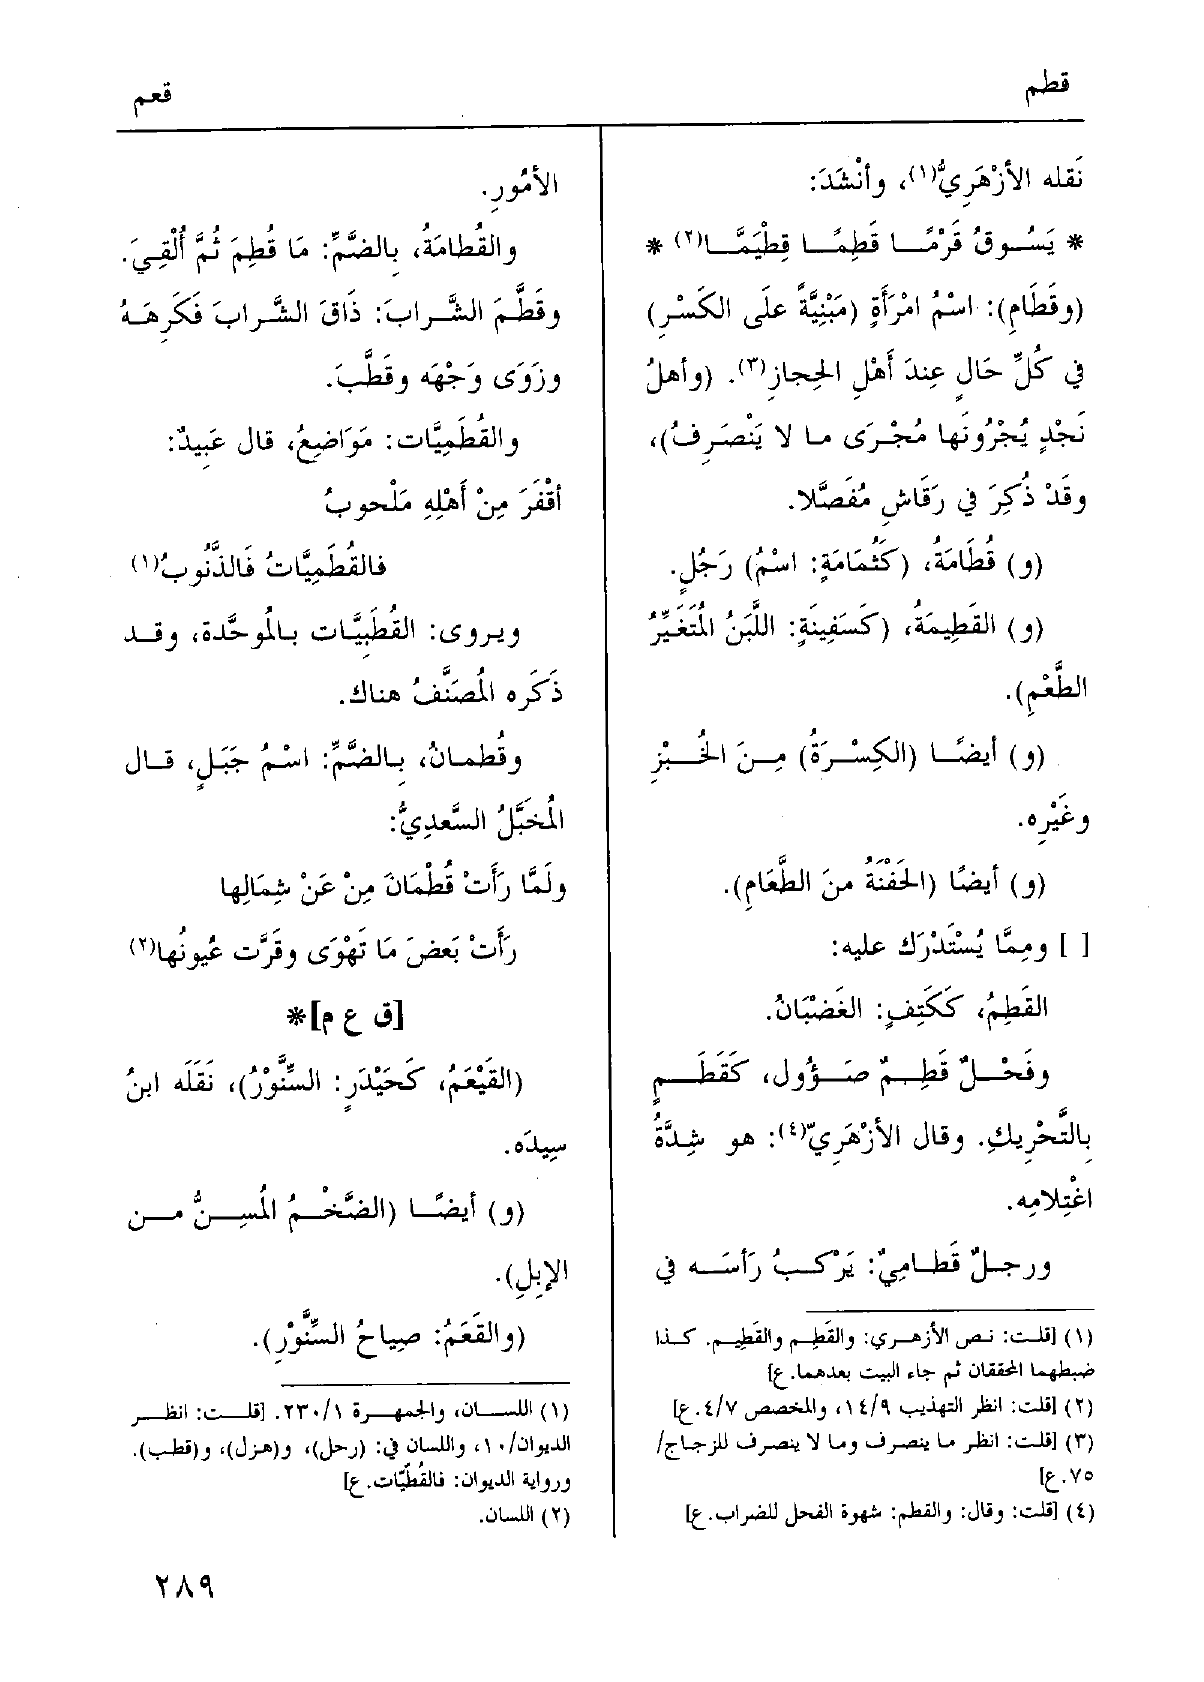 قطم
قعم
نَقله الأزْهَرِيُّ(١)، وأنْشَدَ:
* يَسُوقُ قَرْمًا قَطِمًا قِطْيَمًّا(٢) *
(وقَطَامِ): اسْمُ امْرَأَةٍ (مَبْنِيَّةً علَى الكَسْرِ)
في كُلِّ حَالٍ عِندَ أَهْلِ الحِجازِ(٣). (وأهلُ
نَجْدٍ يُجْرُونَها مُجْرَى ما لا يَنْصَرِفُ)،
وقَدْ ذُكِرَ في رَقَاشِ مُفَصَّلا.
(و) قُطَامَةُ، (كَثُمَامَةٍ: اسْمُ) رَجُلٍ.
(و) القَطِيمَةُ، (كَسَفِينَةٍ: اللَّبَنُ المُتَغَيِّرُ
الطَّعْمِ).
(و) أيضًا (الكِسْرَةُ) مِنَ الخُبْزِ
وغَيْرِه.
(و) أيضًا (الحَفْنَةُ منَ الطَّعَامِ).
[ ] ومِمَّا يُسْتَدْرَك عليه:
القَطِمُ، كَكَتِفٍ: الغَضْبَانُ.
وفَحْلٌ قَطِمٌ صَؤُول، كَقَطَمٍ
بِالتَّحْرِيكِ. وقال الأزْهَرِيّ(٤): هو شِدَّةُ
اغْتِلامِه.
ورجلٌ قَطَامِيٌ: يَرْكبُ رَأسَه في
(١) [قلت: نص الأزهري: والقَطِم والقَطِيم. كذا
ضبطهما المحققان ثم جاء البيت بعدهما. ع]
(٢) [قلت: انظر التهذيب ١٤/٩، والمخصص ٤/٧. ع]
(٣) [قلت: انظر ما ينصرف وما لا ينصرف للزجاج/
٧٥. ع]
(٤) [قلت: وقال: والقطم: شهوة الفحل للضراب. ع]
الأمُورِ.
والقُطامَةُ، بِالضَّمِّ: مَا قُطِمَ ثُمَّ أُلْقِيَ.
وقَطَّمَ الشَّرابَ: ذَاقَ الشَّرابَ فَكَرِهَهُ
وزَوَى وَجْهَه وقَطَّبَ.
والقُطَمِيَّات: مَوَاضِعُ، قال عَبِيدٌ:
أقْفَرَ مِنْ أَهْلِهِ مَلْحوبُ
فالقُطَمِيَّاتُ فَالذَّنُوبُ(١)
ويروى: القُطَبِيَّات بالمُوحَّدة، وقد
ذَكَره المُصَنَّفُ هناك.
وقُطمانُ، بِالضَّمِّ: اسْمُ جَبَلٍ، قال
المُخَبَّلُ السَّعدِيُّ:
ولَمَّا رَأَتْ قُطْمَانَ مِنْ عَنْ شِمَالِها
رَأَتْ بَعضَ مَا تَهْوَى وقَرَّت عُيونُها(٢)
[ق ع م]*
(القَيْعَمُ، كَحَيْدَرٍ: السِّنَّوْرُ)، نَقَلَه ابنُ
سِيدَه.
(و) أيضًا (الضَّخْمُ المُسِنُّ من
الإبِلِ).
(والقَعَمُ: صِياحُ السِّنَّوْرِ).
(١) اللسان، والجمهرة ٢٣٠/١. [قلت: انظر
الديوان/١٠، واللسان في: (رحل)، و(هزل)، و(قطب).
ورواية الديوان: فالقُطّبيّات. ع]
(٢) اللسان.
٢٨٩